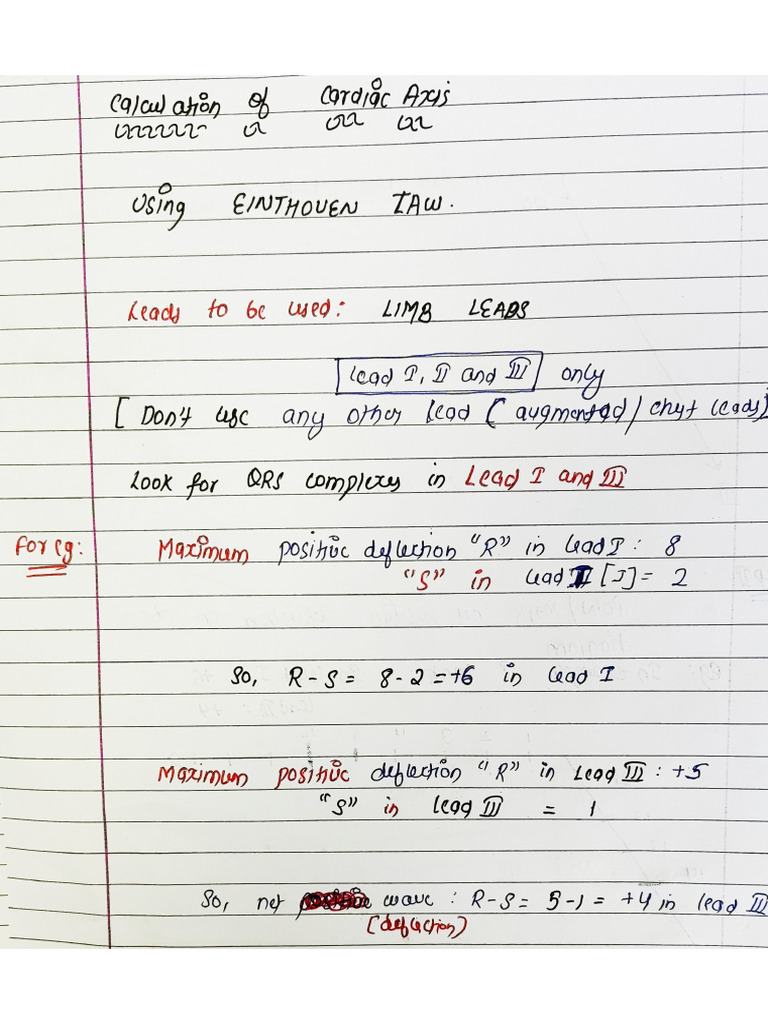 Calculation of Cardiac Axis
Using EINTHOVEN LAW.
Leads to be used: LIMB LEADS
Lead I, II and III only
[ Don't use any other lead ( augmented / chest leads)
Look for QRS complexes in Lead I and III
For eg: Maximum positive deflection "R" in lead I : 8
"S" in lead [I] = 2
So, R - S = 8 - 2 = +6 in lead I
Maximum positive deflection "R" in lead III : +5
"S" in lead III = 1
So, net wave : R - S = 5 - 1 = +4 in lead III
(deflection)